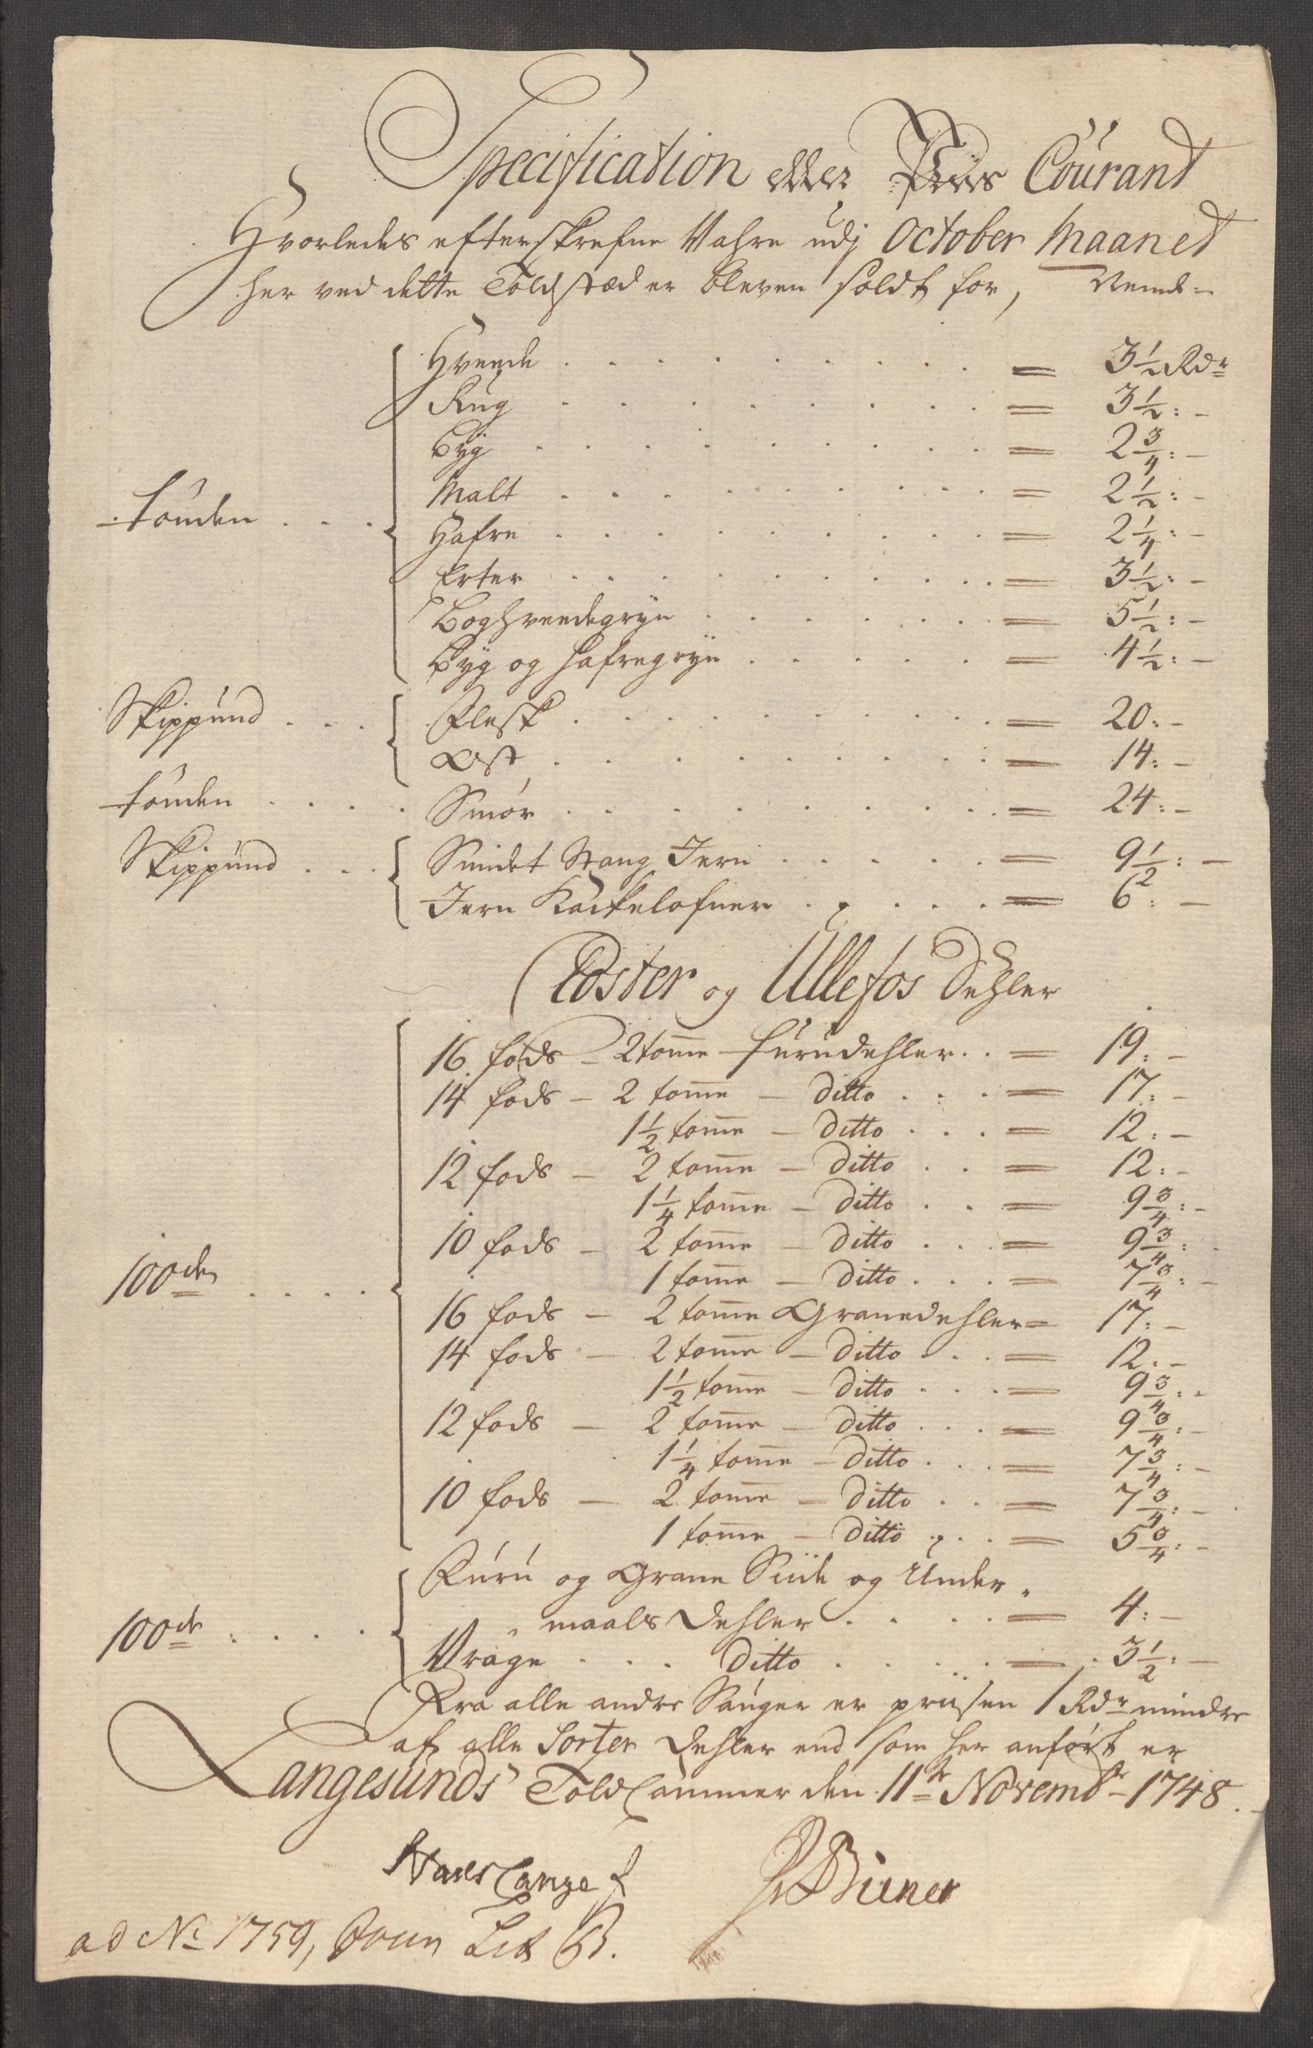 Specification eller Priis Courant
Hvorledes efterskrefne Vahre udj October Maanet
her ved dette Toldstæd er bleven soldt for, Nemlig
Tônden . . . Hveede . . . = 3 1/2 Rdr
Rug . . . = 3 1/2: -
Byg . . . = 2 3/4: -
Malt . . . = 2 1/2: -
Hafre . . . = 2 1/4: -
Erter . . . = 3 1/2: -
Boghveedegryn . . . = 5 1/2: -
Byg og hafregryn . . . = 4 1/2: -
Skippund . . . Flesk . . . = 20: -
Ost . . . = 14: -
Tônden . . . Smør . . . = 24: -
Skippund . . . Smidet Stang Jern . . . = 9 1/2: -
Jern Kackelofner . . . = 6: -
Bôster og Ullefos Dehler
100de . . . 16 fods - 2 tomme furudehler . . = 19: -
14 fods - 2 tomme - Ditto . . . = 17: -
1 1/2 tomme - Ditto . . . = 12: -
12 fods - 2 tomme - Ditto . . = 12: -
1 1/4 tomme - Ditto . . = 9 3/4: -
10 fods - 2 tomme - Ditto . . . = 9 3/4: -
1 tomme - Ditto . . . = 7 3/4: -
16 fods - 2 tomme Granedehler = 17: -
14 fods - 2 tomme - Ditto . . . = 12: -
1 1/2 tomme - Ditto . . . = 9 3/4: -
12 fods - 2 tomme - Ditto . . . = 9 3/4: -
1 1/4 tomme - Ditto . . . = 7 3/4: -
10 fods - 2 tomme - Ditto . . = 7 3/4: -
1 tomme - Ditto . . = 5 3/4: -
100de . . . . Furu og Grane Siide og Under
maals Dehler . . . . = 4: -
Vrage . . . Ditto . . . . = 3 1/2: -
Fra alle andre Sauger er priisen 1 Rdr mindre
af alle Sorter Dehler end som her anført er
Langesunds Told Cammer den 11te Novembr 1748.
Hans Lange
Biener
ad No 1759, Lit B.